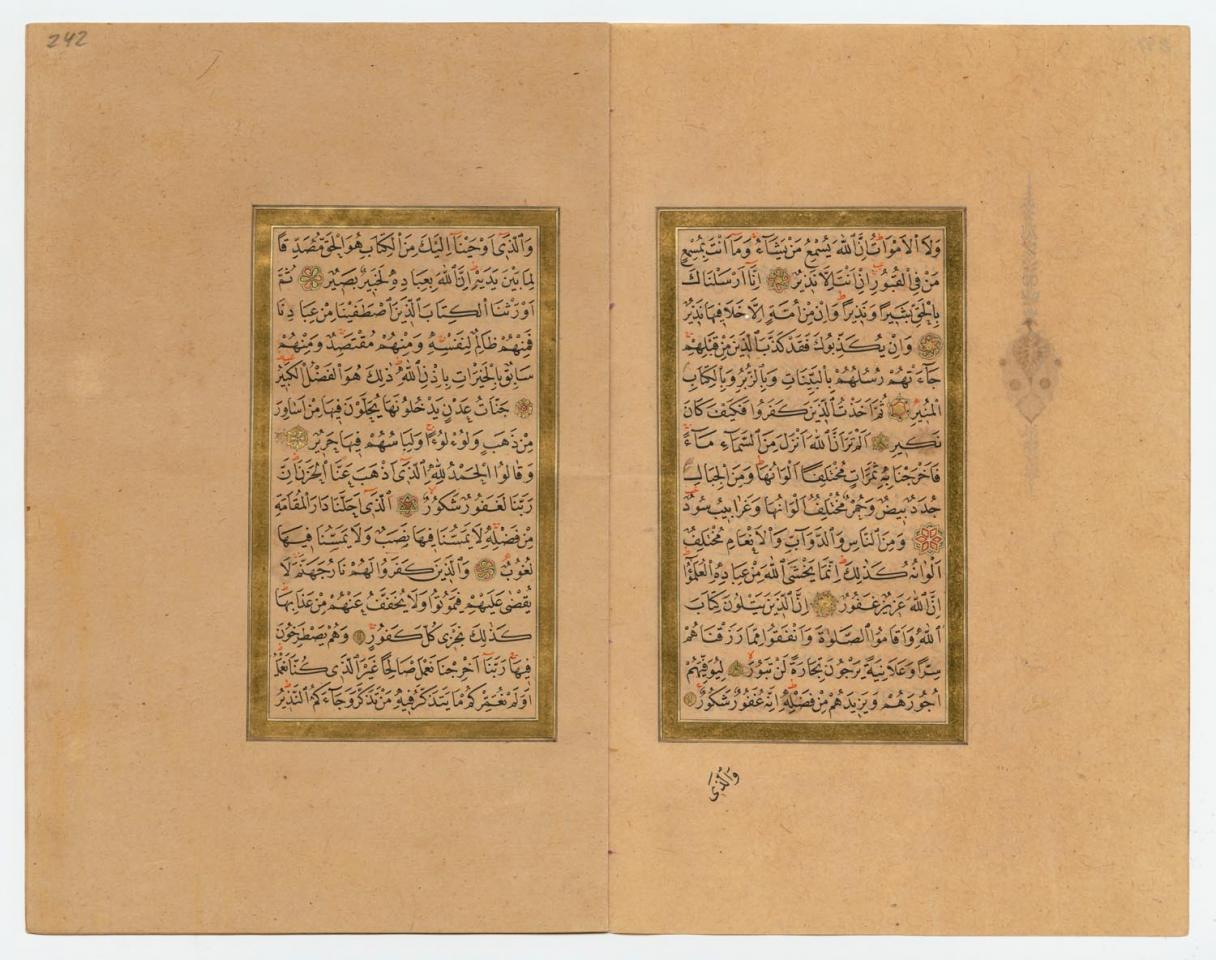 وَلَا الْاَمْوَاتُ اِنَّ اللّٰهَ يُسْمِعُ مَنْ يَشَاءُ وَمَا اَنْتَ بِمُسْمِعٍ
مَنْ فِي الْقُبُورِ اِنْ اَنْتَ اِلَّا نَذِيرٌ اِنَّا اَرْسَلْنَاكَ
بِالْحَقِّ بَشِيرًا وَنَذِيرًا وَاِنْ مِنْ اُمَّةٍ اِلَّا خَلَا فِيهَا نَذِيرٌ
وَاِنْ يُكَذِّبُوكَ فَقَدْ كَذَّبَ الَّذِينَ مِنْ قَبْلِهِمْ
جَاءَتْهُمْ رُسُلُهُمْ بِالْبَيِّنَاتِ وَبِالزُّبُرِ وَبِالْكِتَابِ
الْمُنِيرِ ثُمَّ اَخَذْتُ الَّذِينَ كَفَرُوا فَكَيْفَ كَانَ
نَكِيرِ اَلَمْ تَرَ اَنَّ اللّٰهَ اَنْزَلَ مِنَ السَّمَاءِ مَاءً
فَاَخْرَجْنَا بِهِ ثَمَرَاتٍ مُخْتَلِفًا اَلْوَانُهَا وَمِنَ الْجِبَالِ
جُدَدٌ بِيضٌ وَحُمْرٌ مُخْتَلِفٌ اَلْوَانُهَا وَغَرَابِيبُ سُودٌ
وَمِنَ النَّاسِ وَالدَّوَابِّ وَالْاَنْعَامِ مُخْتَلِفٌ
اَلْوَانُهُ كَذٰلِكَ اِنَّمَا يَخْشَى اللّٰهَ مِنْ عِبَادِهِ الْعُلَمٰؤُا
اِنَّ اللّٰهَ عَزِيزٌ غَفُورٌ اِنَّ الَّذِينَ يَتْلُونَ كِتَابَ
اللّٰهِ وَاَقَامُوا الصَّلٰوةَ وَاَنْفَقُوا مِمَّا رَزَقْنَاهُمْ
سِرًّا وَعَلَانِيَةً يَرْجُونَ تِجَارَةً لَنْ تَبُورَ لِيُوَفِّيَهُمْ
اُجُورَهُمْ وَيَزِيدَهُمْ مِنْ فَضْلِهِ اِنَّهُ غَفُورٌ شَكُورٌ
وَالَّذِى
242
وَالَّذِى اَوْحَيْنَا اِلَيْكَ مِنَ الْكِتَابِ هُوَ الْحَقُّ مُصَدِّقًا
لِمَا بَيْنَ يَدَيْهِ اِنَّ اللّٰهَ بِعِبَادِهِ لَخَبِيرٌ بَصِيرٌ ثُمَّ
اَوْرَثْنَا الْكِتَابَ الَّذِينَ اصْطَفَيْنَا مِنْ عِبَادِنَا
فَمِنْهُمْ ظَالِمٌ لِنَفْسِهِ وَمِنْهُمْ مُقْتَصِدٌ وَمِنْهُمْ
سَابِقٌ بِالْخَيْرَاتِ بِاِذْنِ اللّٰهِ ذٰلِكَ هُوَ الْفَضْلُ الْكَبِيرُ
جَنَّاتُ عَدْنٍ يَدْخُلُونَهَا يُحَلَّوْنَ فِيهَا مِنْ اَسَاوِرَ
مِنْ ذَهَبٍ وَلُؤْلُؤًا وَلِبَاسُهُمْ فِيهَا حَرِيرٌ
وَقَالُوا الْحَمْدُ لِلّٰهِ الَّذِى اَذْهَبَ عَنَّا الْحَزَنَ اِنَّ
رَبَّنَا لَغَفُورٌ شَكُورٌ اَلَّذِى اَحَلَّنَا دَارَ الْمُقَامَةِ
مِنْ فَضْلِهِ لَا يَمَسُّنَا فِيهَا نَصَبٌ وَلَا يَمَسُّنَا فِيهَا
لُغُوبٌ وَالَّذِينَ كَفَرُوا لَهُمْ نَارُ جَهَنَّمَ لَا
يُقْضٰى عَلَيْهِمْ فَيَمُوتُوا وَلَا يُخَفَّفُ عَنْهُمْ مِنْ عَذَابِهَا
كَذٰلِكَ نَجْزِى كُلَّ كَفُورٍ وَهُمْ يَصْطَرِخُونَ
فِيهَا رَبَّنَا اَخْرِجْنَا نَعْمَلْ صَالِحًا غَيْرَ الَّذِى كُنَّا نَعْمَلُ
اَوَلَمْ نُعَمِّرْكُمْ مَا يَتَذَكَّرُ فِيهِ مَنْ تَذَكَّرَ وَجَاءَكُمُ النَّذِيرُ